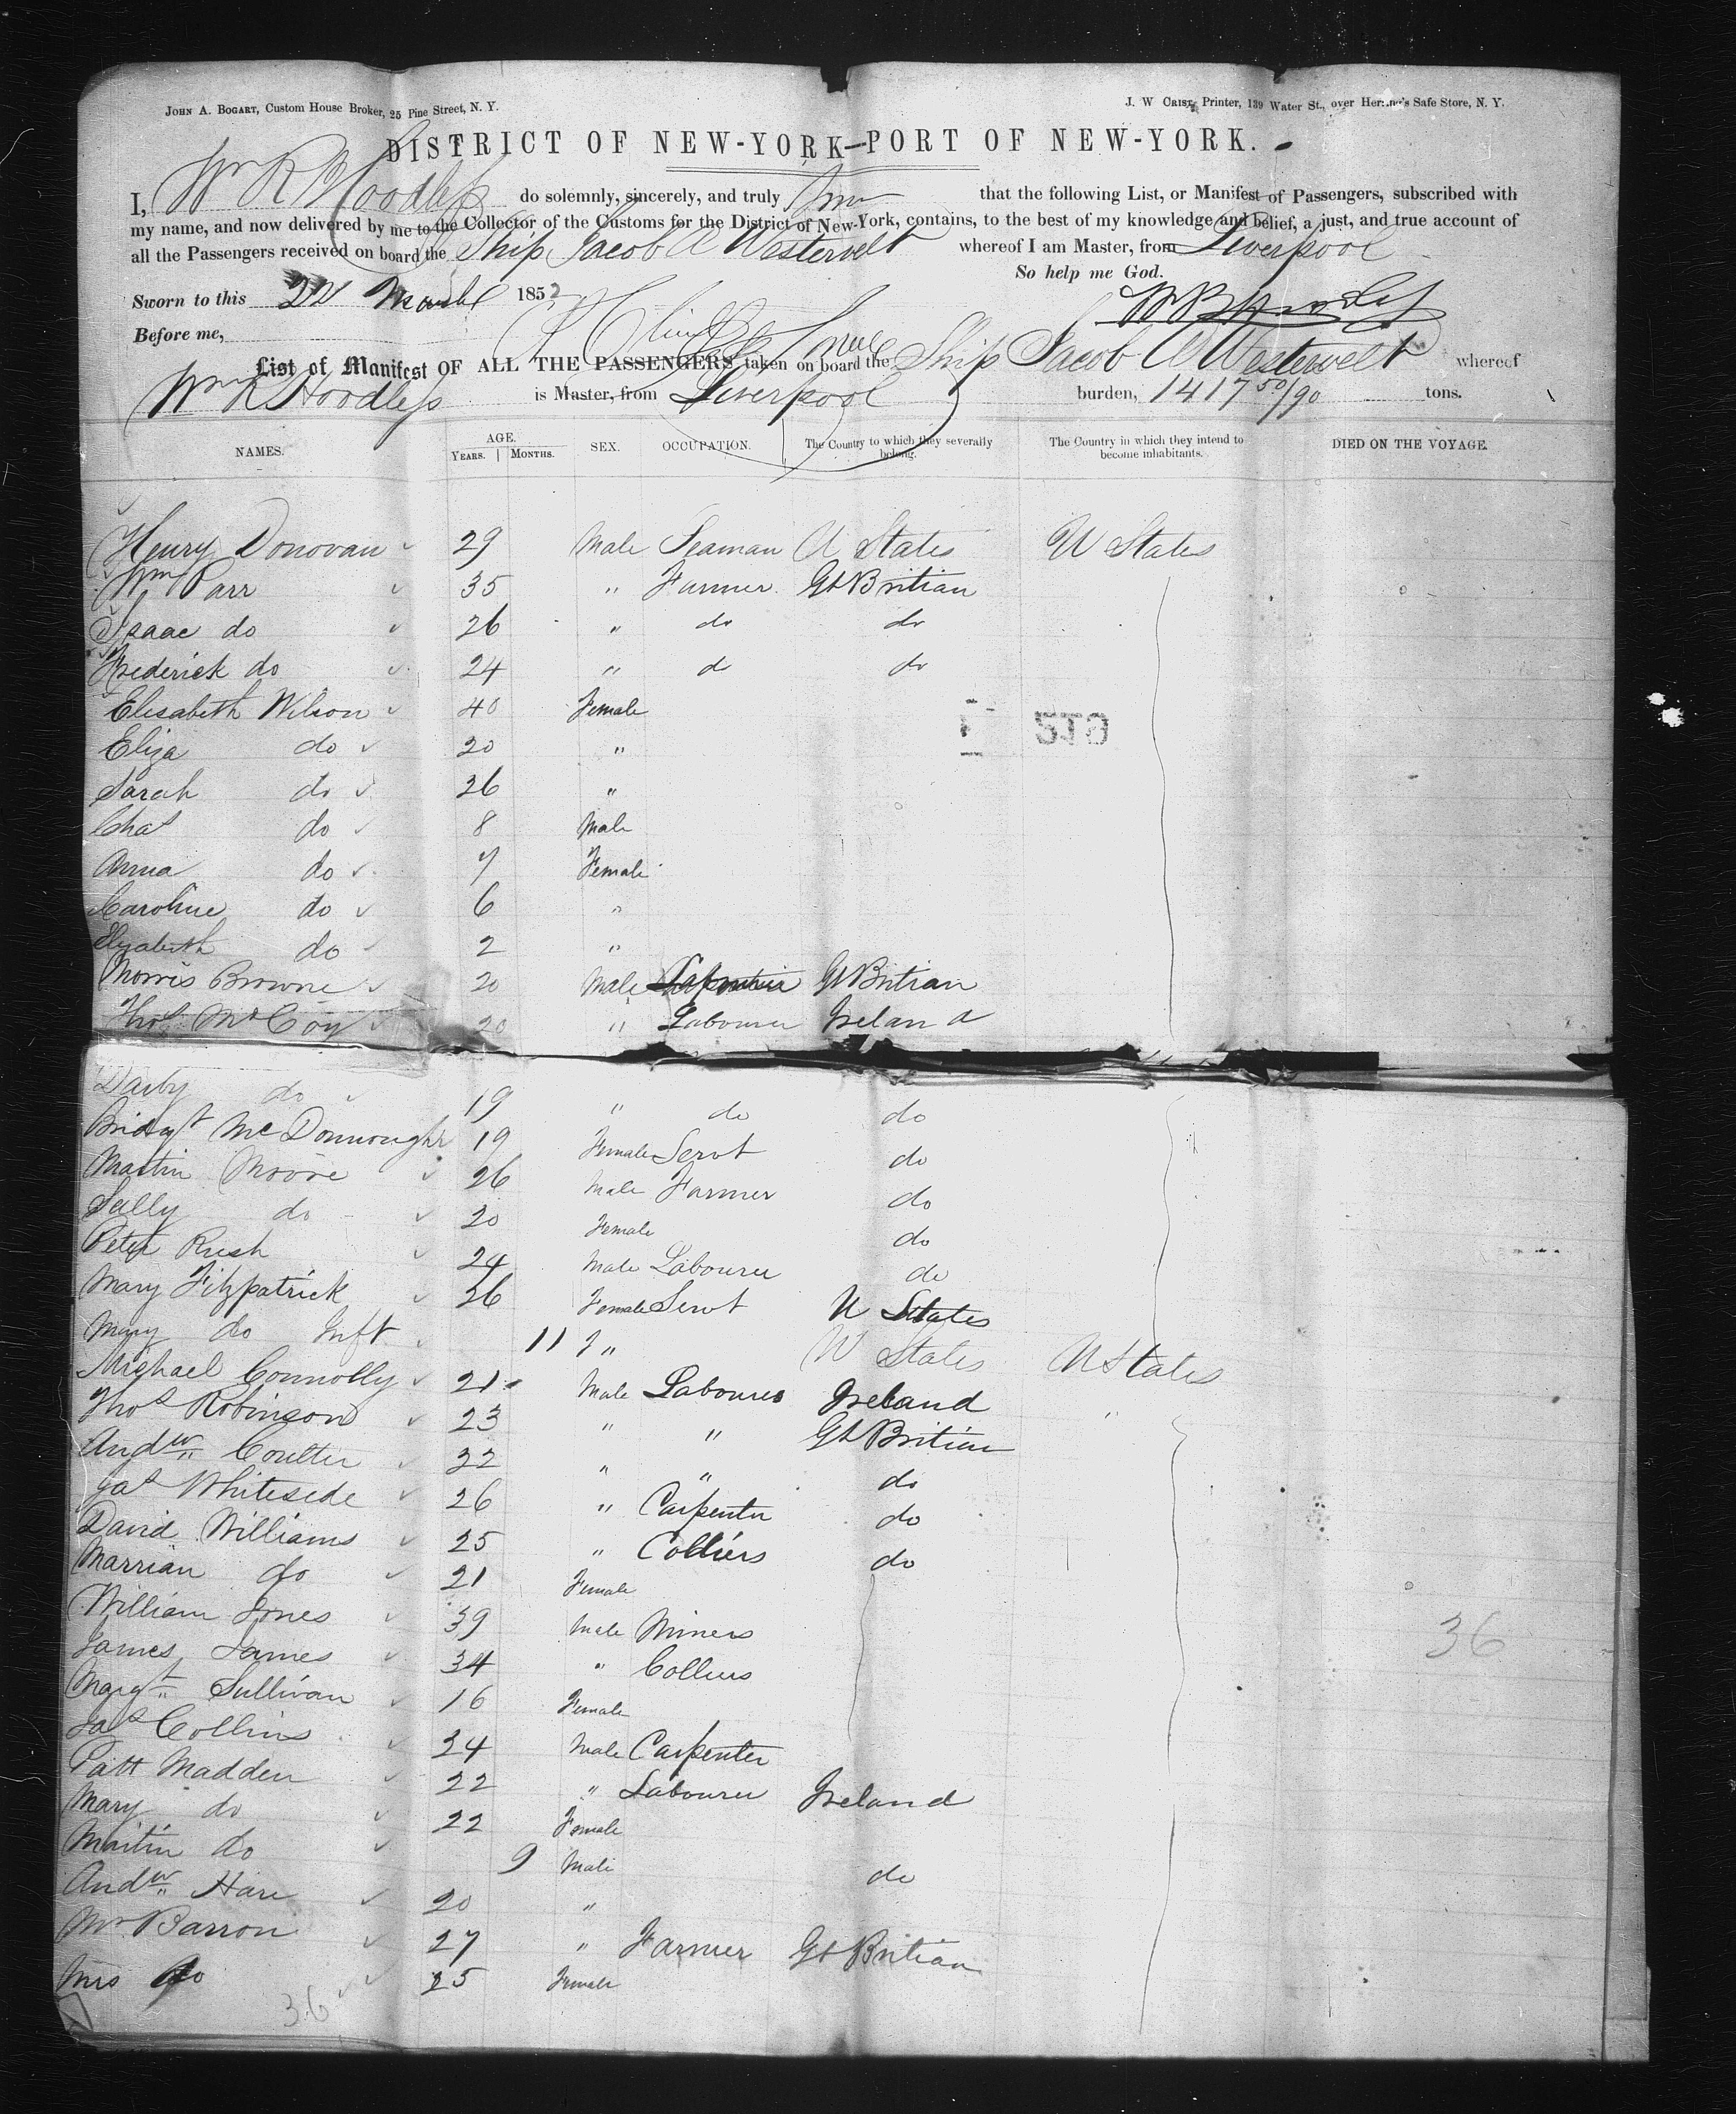 JOHN A. BOGART, Custom House Broker, 25 Pine Street, N. Y.
J. W CRIST, Printer, 139 Water St., over Herring's Safe Store, N. Y.
DISTRICT OF NEW-YORK—PORT OF NEW-YORK.
I, Wm R Hoodless do solemnly, sincerely, and truly that the following List, or Manifest of Passengers, subscribed with
my name, and now delivered by me to the Collector of the Customs for the District of New-York, contains, to the best of my knowledge and belief, a just, and true account of
all the Passengers received on board the Ship Jacob A Westervelt whereof I am Master, from Liverpool
So help me God.
Sworn to this 22 March 1852
Before me,
List of Manifest OF ALL THE PASSENGERS taken on board the Ship Jacob A Westervelt whereof
Wm R Hoodless is Master, from Liverpool burden, 1417 50/90 tons.
NAMES. AGE. YEARS. MONTHS. SEX. OCCUPATION. The Country to which they severally belong. The Country in which they intend to become inhabitants. DIED ON THE VOYAGE.
Henry Donovan 29 Male Seaman U States U States
Wm Parr 35 " Farmer Gt Britian
Isaac do 26 " do do
Frederick do 24 " do do
Elisabeth Wilson 40 Female
Eliza do 20 "
Sarah do 26 "
Chas do 8 Male
Anna do 7 Female
Caroline do 6 "
Elyabeth do 2 "
Morris Browne 20 Male Gt Britian
Thos McCoy 20 " Labourer Ireland
Darby do 19 " do do
Bridgt McDonnough 19 Female Servt do
Martin Moore 26 Male Farmer do
Sally do 20 Female do
Peter Rush 24 Male Labourer do
Mary Fitzpatrick 26 Female Servt U States
Mary do Inft 11 " U States U States
Michael Connolly 21 Male Labourer Ireland "
Thos Robinson 23 " " Gt Britian
Andw Coulter 32 " " do
Jas Whiteside 26 " Carpenter do
David Williams 25 " Colliers do
Marrian do 21 Female
William Jones 39 Male Miners
James James 34 " Colliers
Margt Sullivan 16 Female
Jas Collins 34 Male Carpenter
Patt Madden 22 " Labourer Ireland
Mary do 22 Female
Martin do 9 Male do
Andw Hare 20 "
Mr Barron 27 " Farmer Gt Britian
Mrs do 25 Female
36
36